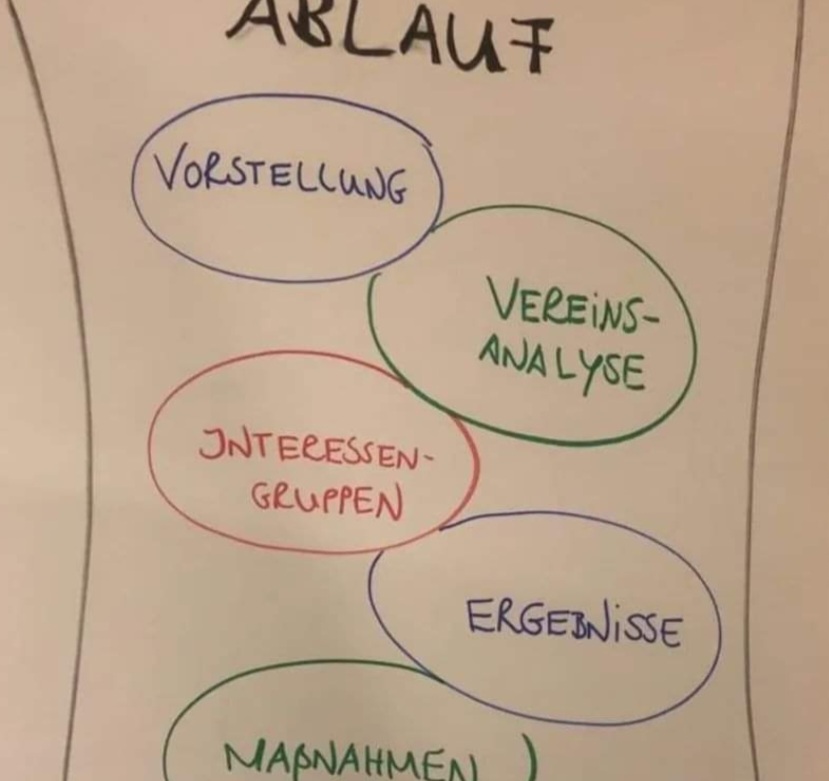 ABLAUF
VORSTELLUNG
VEREiNS-
ANALYSE
INTERESSEN-
GRUPPEN
ERGEBNiSSE
MAßNAHMEN